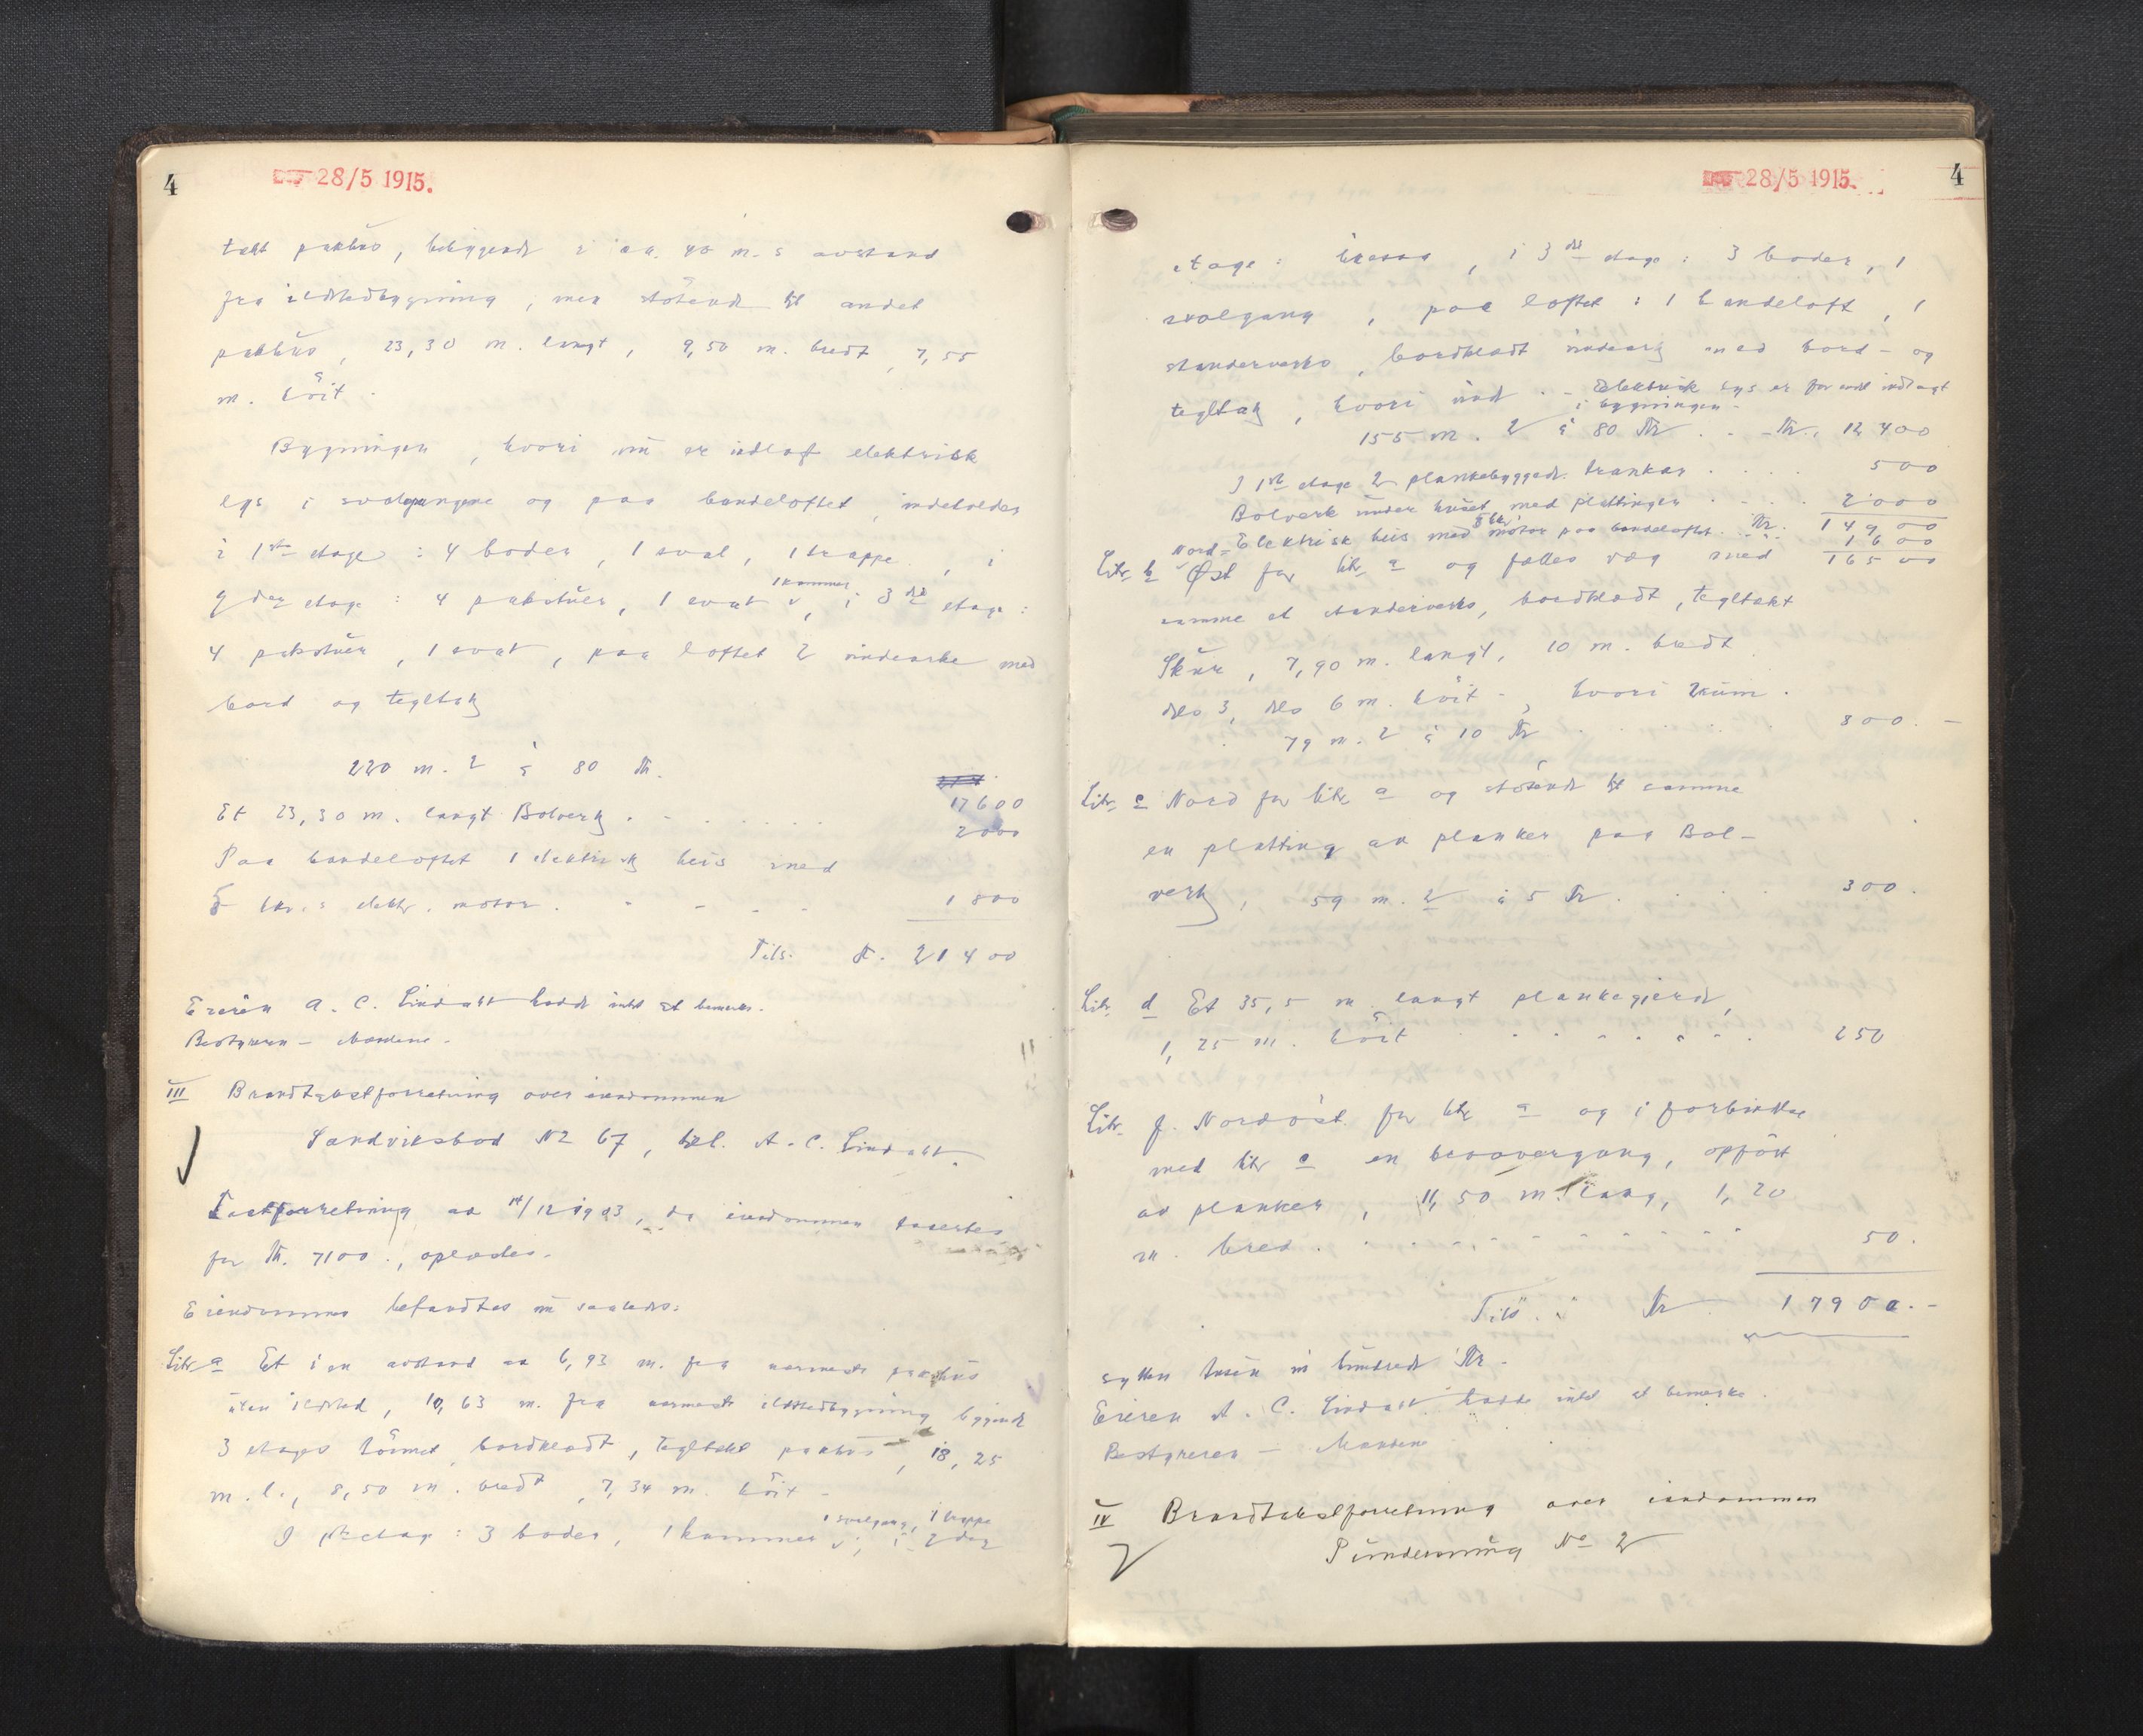 4
28/5 1915.
tækt pakhus, beliggende i ca. 40 m.s avstand
fra ildstedbygning, men stötende til andet
pakhus, 23,30 m. langt, 9,50 m. bredt, 7,55
m. höit.
Bygningen, hvori nu er indlagt elektrisk
lys i svalgangene og paa handeloftet, indeholder
i 1ste etage: 4 boder, 1 sval, 1 trappe, i
2den etage: 4 pakstuer, 1 sval, 1 kammer, i 3die etage:
4 pakstuer, 1 sval, paa loftet 2 vindearke med
bord og tegltak
220 m. 2 à 80 Kr.
17600
Et 23,30 m. langt Bolverk . . . . . .
2000
Paa handeloftet 1 elektrisk heis med
5 hk.s elektr. motor . . . . .
1800
Tils. Kr. 21400
Eieren A. C. Lindahl hadde intet at bemerke.
Bestyreren - Nordene.
III Brandtakstforretning over eiendommen
Sandviksbod No 67, bel. A. C. Lindahl.
Takstforretning av 14/12 1903, da eiendommen taxertes
for Kr. 7100., oplæstes.
Eiendommen befandtes nu saaledes:
Litr a Et i en avstand av 6,93 m. fra nærmeste pakhus
uten ildsted, 10,63 m. fra nærmeste ildstedbygning liggende
3 etages tömret, bordklædt, tegltækt pakhus, 18,25
m. l., 8,50 m. bredt, 7,34 m. höit -
I 1ste etage: 3 boder, 1 kammer, 1 svalgang, 1 trappe, i 2den
28/5 1915.
4
etage: , i 3die etage: 3 boder, 1
svalgang, paa loftet: 1 handeloft, 1
standerverks, bordklædt vindeark med bord- og
tegltak, hvori vind . - Elektrisk lys er forend indlagt
i bygningen -
155 m. 2 à 80 Kr . . - Kr. 12400
I 1ste etage 2 plankebyggede trankar . . . .
500
Bolverk under huset med plattingen . . . .
2000
Kr. 14900
Elektrisk heis med 5 hk. motor paa handeloftet. . . .
1600
16500
Litr. b Nord-Øst for litr. a og fælles væg med
samme et standerverks, bordklædt, tegltækt
Skur, 7,90 m. langt, 10 m. bredt
dels 3, dels 6 m. höit -, hvori rum.
79 m. 2 à 10 Kr . . . . .
800. -
Litr. c Nord for litr. a og stötende til samme
en platting av planker paa Bol-
verk, 59 m. 2 à 5 Kr. . . . .
300.
Litr. d Et 35,5 m. langt plankegjerde,
1,25 m. höit . . . . . . .
250
Litr. f. Nordöst for litr. a og i forbindelse
med litr. c en broovergang, opfört
av planker, 11,50 m. lang, 1,20
m. bred . . . . . . . . . .
50.
Tils. : Kr 17900. -
sytten tusen ni hundrede Kr.
Eieren A. C. Lindahl hadde intet at bemerke.
Bestyreren - Nordene
IV Brandtakstforretning over eiendommen
No 2